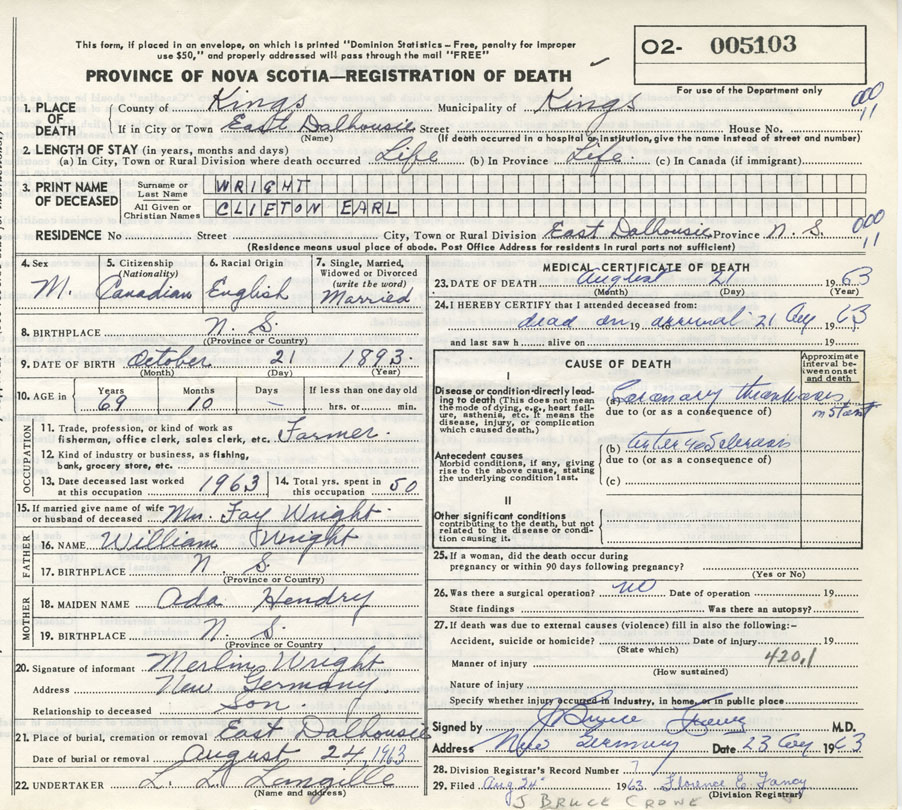 This form, if placed in an envelope, on which is printed "Dominion Statistics – Free, penalty for improper
use $50," and properly addressed will pass through the mail "FREE"
O2- 005103
PROVINCE OF NOVA SCOTIA—REGISTRATION OF DEATH
For use of the Department only
1. PLACE OF DEATH
County of Kings Municipality of Kings
If in City or Town East Dalhousie Street House No.
(Name) (If death occurred in a hospital or institution, give the name instead of street and number)
000 11
2. LENGTH OF STAY (in years, months and days)
(a) In City, Town or Rural Division where death occurred Life (b) In Province Life. (c) In Canada (if immigrant)
3. PRINT NAME OF DECEASED
Surname or Last Name WRIGHT
All Given or Christian Names CLIFTON EARL
RESIDENCE No Street City, Town or Rural Division East Dalhousie Province N. S.
000 11
(Residence means usual place of abode. Post Office Address for residents in rural parts not sufficient)
4. Sex M.
5. Citizenship (Nationality) Canadian
6. Racial Origin English
7. Single, Married, Widowed or Divorced (write the word) Married
8. BIRTHPLACE N. S.
(Province or Country)
9. DATE OF BIRTH October 21 1893.
(Month) (Day) (Year)
10. AGE in Years 69 Months 10 Days – If less than one day old hrs. or min.
OCCUPATION
11. Trade, profession, or kind of work as fisherman, office clerk, sales clerk, etc. Farmer
12. Kind of industry or business, as fishing, bank, grocery store, etc.
13. Date deceased last worked at this occupation 1963 14. Total yrs. spent in this occupation 50
15. If married give name of wife or husband of deceased Mrs. Fay Wright
FATHER
16. NAME William Wright
17. BIRTHPLACE N. S.
(Province or Country)
MOTHER
18. MAIDEN NAME Ada Hendry
19. BIRTHPLACE N. S.
(Province or Country)
20. Signature of informant Merlin Wright
Address New Germany
Relationship to deceased Son.
21. Place of burial, cremation or removal East Dalhousie
Date of burial or removal August 24 1963
22. UNDERTAKER L. L. Langille
(Name and address)
MEDICAL CERTIFICATE OF DEATH
23. DATE OF DEATH August 21 1963
(Month) (Day) (Year)
24. I HEREBY CERTIFY that I attended deceased from:
dead on 19 arrival 21 Aug 1963
and last saw h alive on 19
CAUSE OF DEATH
Approximate interval between onset and death
I
Disease or condition directly leading to death (This does not mean the mode of dying, e.g., heart failure, asthenia, etc. It means the disease, injury, or complication which caused death.)
(a) Coronary thrombosis instant
due to (or as a consequence of)
Antecedent causes
Morbid conditions, if any, giving rise to the above cause, stating the underlying condition last.
(b)
due to (or as a consequence of)
(c)
II
Other significant conditions contributing to the death, but not related to the disease or condition causing it.
25. If a woman, did the death occur during pregnancy or within 90 days following pregnancy?
(Yes or No)
26. Was there a surgical operation? no Date of operation 19
State findings Was there an autopsy?
27. If death was due to external causes (violence) fill in also the following:–
Accident, suicide or homicide? Date of injury 19
(State which)
Manner of injury 420.1
(How sustained)
Nature of injury
Specify whether injury occurred in industry, in home, or in public place
Signed by M.D.
Address New Germany Date 23 Aug 1963
28. Division Registrar's Record Number 7
29. Filed Aug 24 1963. Florence E.
(Division Registrar)
J BRUCE CROWE